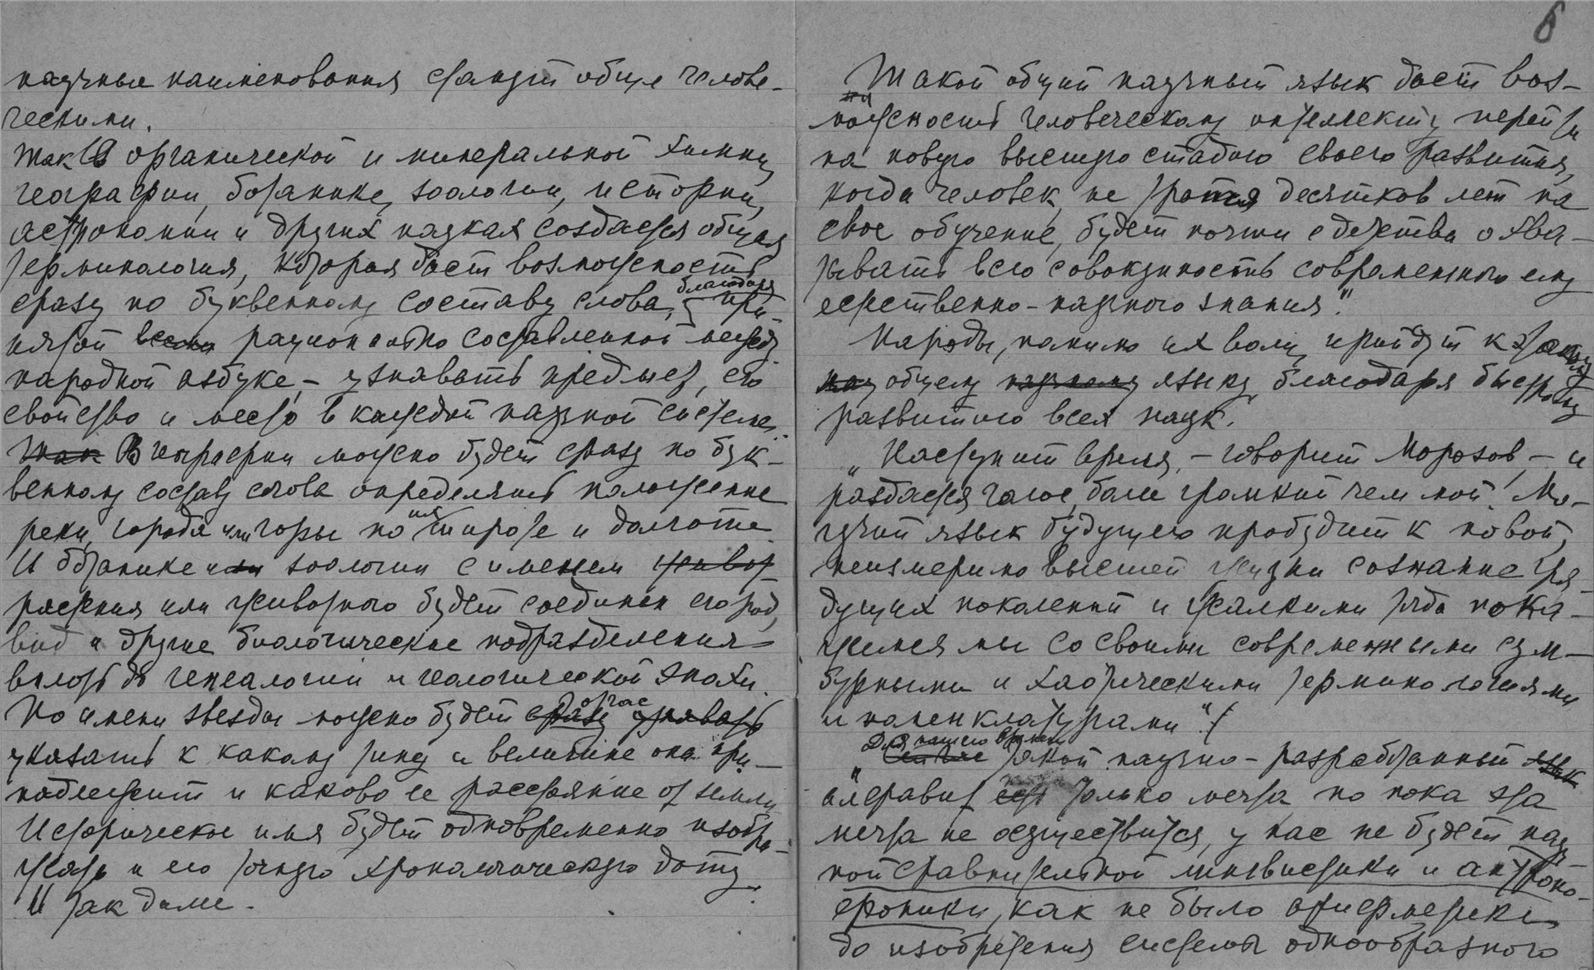 научные наименования станут общечелове-
ческими.
Так в органической и минеральной химии,
географии, ботанике, зоологии, истории,
астрономии и других науках создается общая
терминология, которая даст возможность
сразу по буквенному составу слова, благодаря при-
нятой рационально составленной между
народной азбуке, – узнавать предмет, его
свойство и место в каждой научной системе.
Так В географии можно будет сразу по бук-
венному составу слова определить положение
реки, города или горы по широте и долготе.
И ботанике и зоологии с именем живот
растения или животного будет соединен его род,
вид и другие биологические подразделения
вплоть до генеалогии и геологической эпохи.
По имени звезды можно будет сразу узнавать
указать к какому типу и величине она при-
надлежит и каково ее расстояние от земли
Историческое имя будет одновременно изобра-
жать и его точную хронологическую дату.
И так далее.
6
Такой общий научный язык даст воз-
можность человеческому интеллекту перейти
на новую высшую стадию своего развития,
когда человек, не тратя десятков лет на
свое обучение, будет почти с детства охва-
тывать всю совокупность современного ему
естественно-научного знания".
Народы, помимо их воли, придут к такому
общему научному языку, благодаря быстрому
развитию всех наук.
"Наступит время, – говорит Морозов, – и
раздастся голос, более громкий чем мой! Мо-
гучий язык будущего пробудит к новой,
неизмеримо высшей жизни сознание гря-
дущих поколений и жалкими тогда пока-
жемся мы со своими современными сум-
бурными и хаотическими терминологиями
и номенклатурами"!
Для нашего времени
такой научно-разработанный язык
алфавит есть только мечта но пока эта
мечта не осуществится, у нас не будет науч-
ной сравнительной лингвистики и антропо-
фоники, как не было арифметики
до изобретения системы однообразного